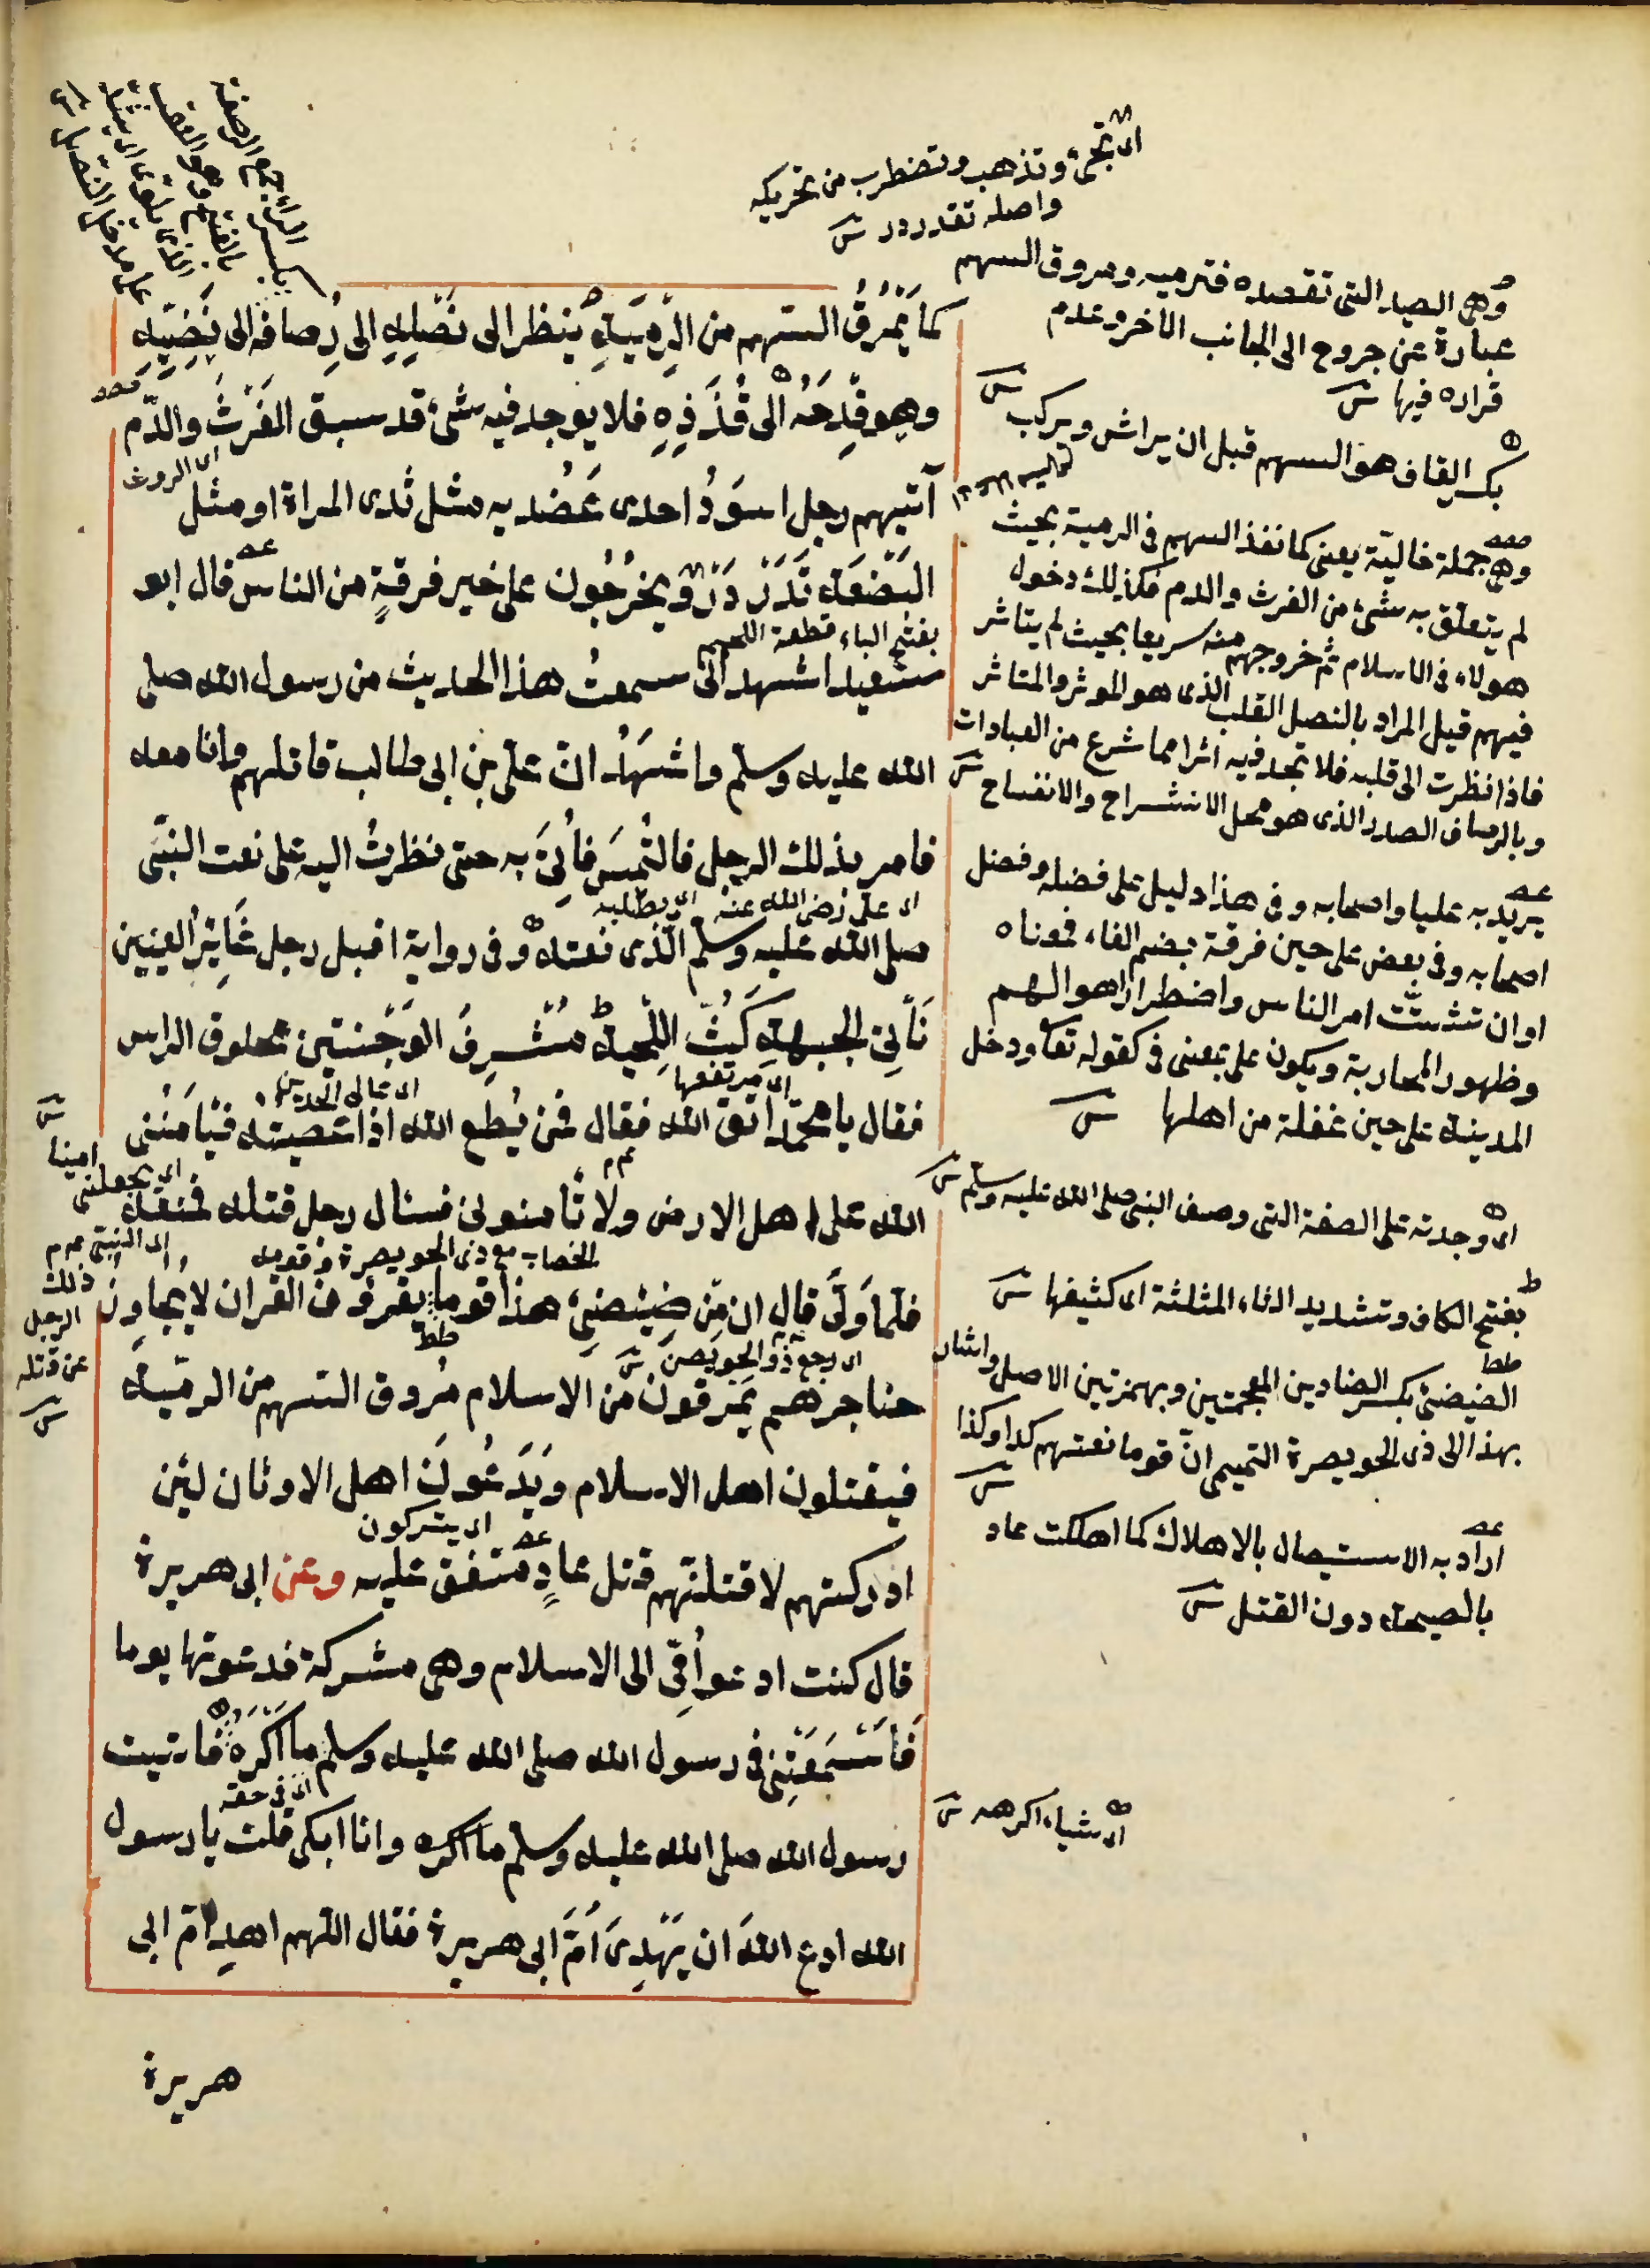 كما يَمْرُقُ السّهم من الرَّمِيّةِ يُنظر الى نَصْلِهِ الى رِصافه الى نَضِيِّهِ
وهو قِدْحُه الى قُذَذِهِ فلا يوجد فيه شئ قد سبق الفَرْثَ والدّم
آتيهم رجل اسوَدُ احدى عَضُديه مثل ثدى المراة او مثل
البَضْعَة تَدَرْدَرُ ويخرُجُون على خير فرقةٍ من الناس قال ابو
سعيد اشهد انى سمعتُ هذا الحديث من رسول الله صلى
الله عليه وسلم واشهَدُ انّ على بن ابى طالب قاتلهم وانا معه
فامر بذلك الرجل فالتُمِسَ فأُتِىَ به حتى نظرتُ اليه على نعت النبّى
صلى الله عليه وسلم الّذى نعته وفى رواية اقبل رجل غَائِرُ العينين
نَاتِئ الجبهة كَثّ اللّحية مُشْرِفُ الوَجْنتين محلوق الراس
فقال يا محمّد اتق الله فقال فمن يُطع الله اذا عَصيته فيَامَنُنى
الله على اهل الارض ولا تامنونى فسال رجل قتله فمنعه
فلمّا ولّى قال ان مِن ضِئضئ هذا قوما يقرؤن القران لا يُجاوِزُ
حناجرهم يَمْرقون من الاسلام مُروق السّهم من الرميّة
فيقتلون اهل الاسلام ويَدَعُونَ اهل الاوثان لئن
ادركتهم لاقتلنّهم قتل عادٍ متفق عليه وعن ابى هريرة
قال كنت ادعو اُمّى الى الاسلام وهى مشركة فدعوتها يوما
فَاَسْمَعَتْنِى فى رسول الله صلى الله عليه وسلم ما اَكْرَهُ فاتيت
رسول الله صلى الله عليه وسلم ما اكره وانا ابكى قلت يا رسول
الله ادع اللهَ ان يَهْدِىَ اُمَّ ابى هريرة فقال اللّهم اهدِ امّ ابى
هريرة
اى تجئ وتذهب وتضطرب من تحريكه
واصله تتدردر
وهى الصيد التى تقصده فترميه ومروق السهم
عبارة عن خروج الى الجانب الاخر وعدم
قراره فيها
بكسر القاف هو السهم قبل ان يراش ويركب
وهى جملة حاليّة يعنى كما نفذ السهم فى الرمية بحيث
لم يتعلق به شئ من الفرث والدم فكذلك دخول
هولاء فى الاسلام ثم خروجهم منه سريعا بحيث لم يتاثر
فيهم قيل المراد بالنصل القلب الذى هو الموثر والمتاثر
فاذا نظرت الى قلبه فلا تجد فيه اثرا مما شرع من العبادات
وبالرصاف الصدر الذى هو محل الانشراح والانفساح
يريد به عليا واصحابه وفى هذا دليل على فضله وفضل
اصحابه وفى بعض على حين فرقة بضم الفاء فمعناه
اوان تشتت امر الناس واضطراب اهوالهم
وظهور المحاربة ويكون على بمعنى فى كقوله تعا ودخل
المدينة على حين غفلة من اهلها
اى وجدته على الصفة التى وصف النبى صلى الله عليه وسلم
بفتح الكاف وتشديد الثاء المثلثة اى كثيفها
الضئضئ بكسر الضادين المعجمتين وبهمزتين الاصل واشار
بهذا الى ذى الخويصرة التميمى انّ قوما نعتهم كذا وكذا
اراد به الاستيصال بالاهلاك كما اهلكت عاد
بالصيحة دون القتل
اى شياء اكرهه
اى الروث
بفتح الباء قطعة اللحم
اى على رضى الله عنه
اى يطلبه
اى مرتفعها
اى عالى الخدين
اى يجعلنى
امينا
اى النبى عم
ذلك
الرجل
عن قتله
اى يتركون
اى فى حقه